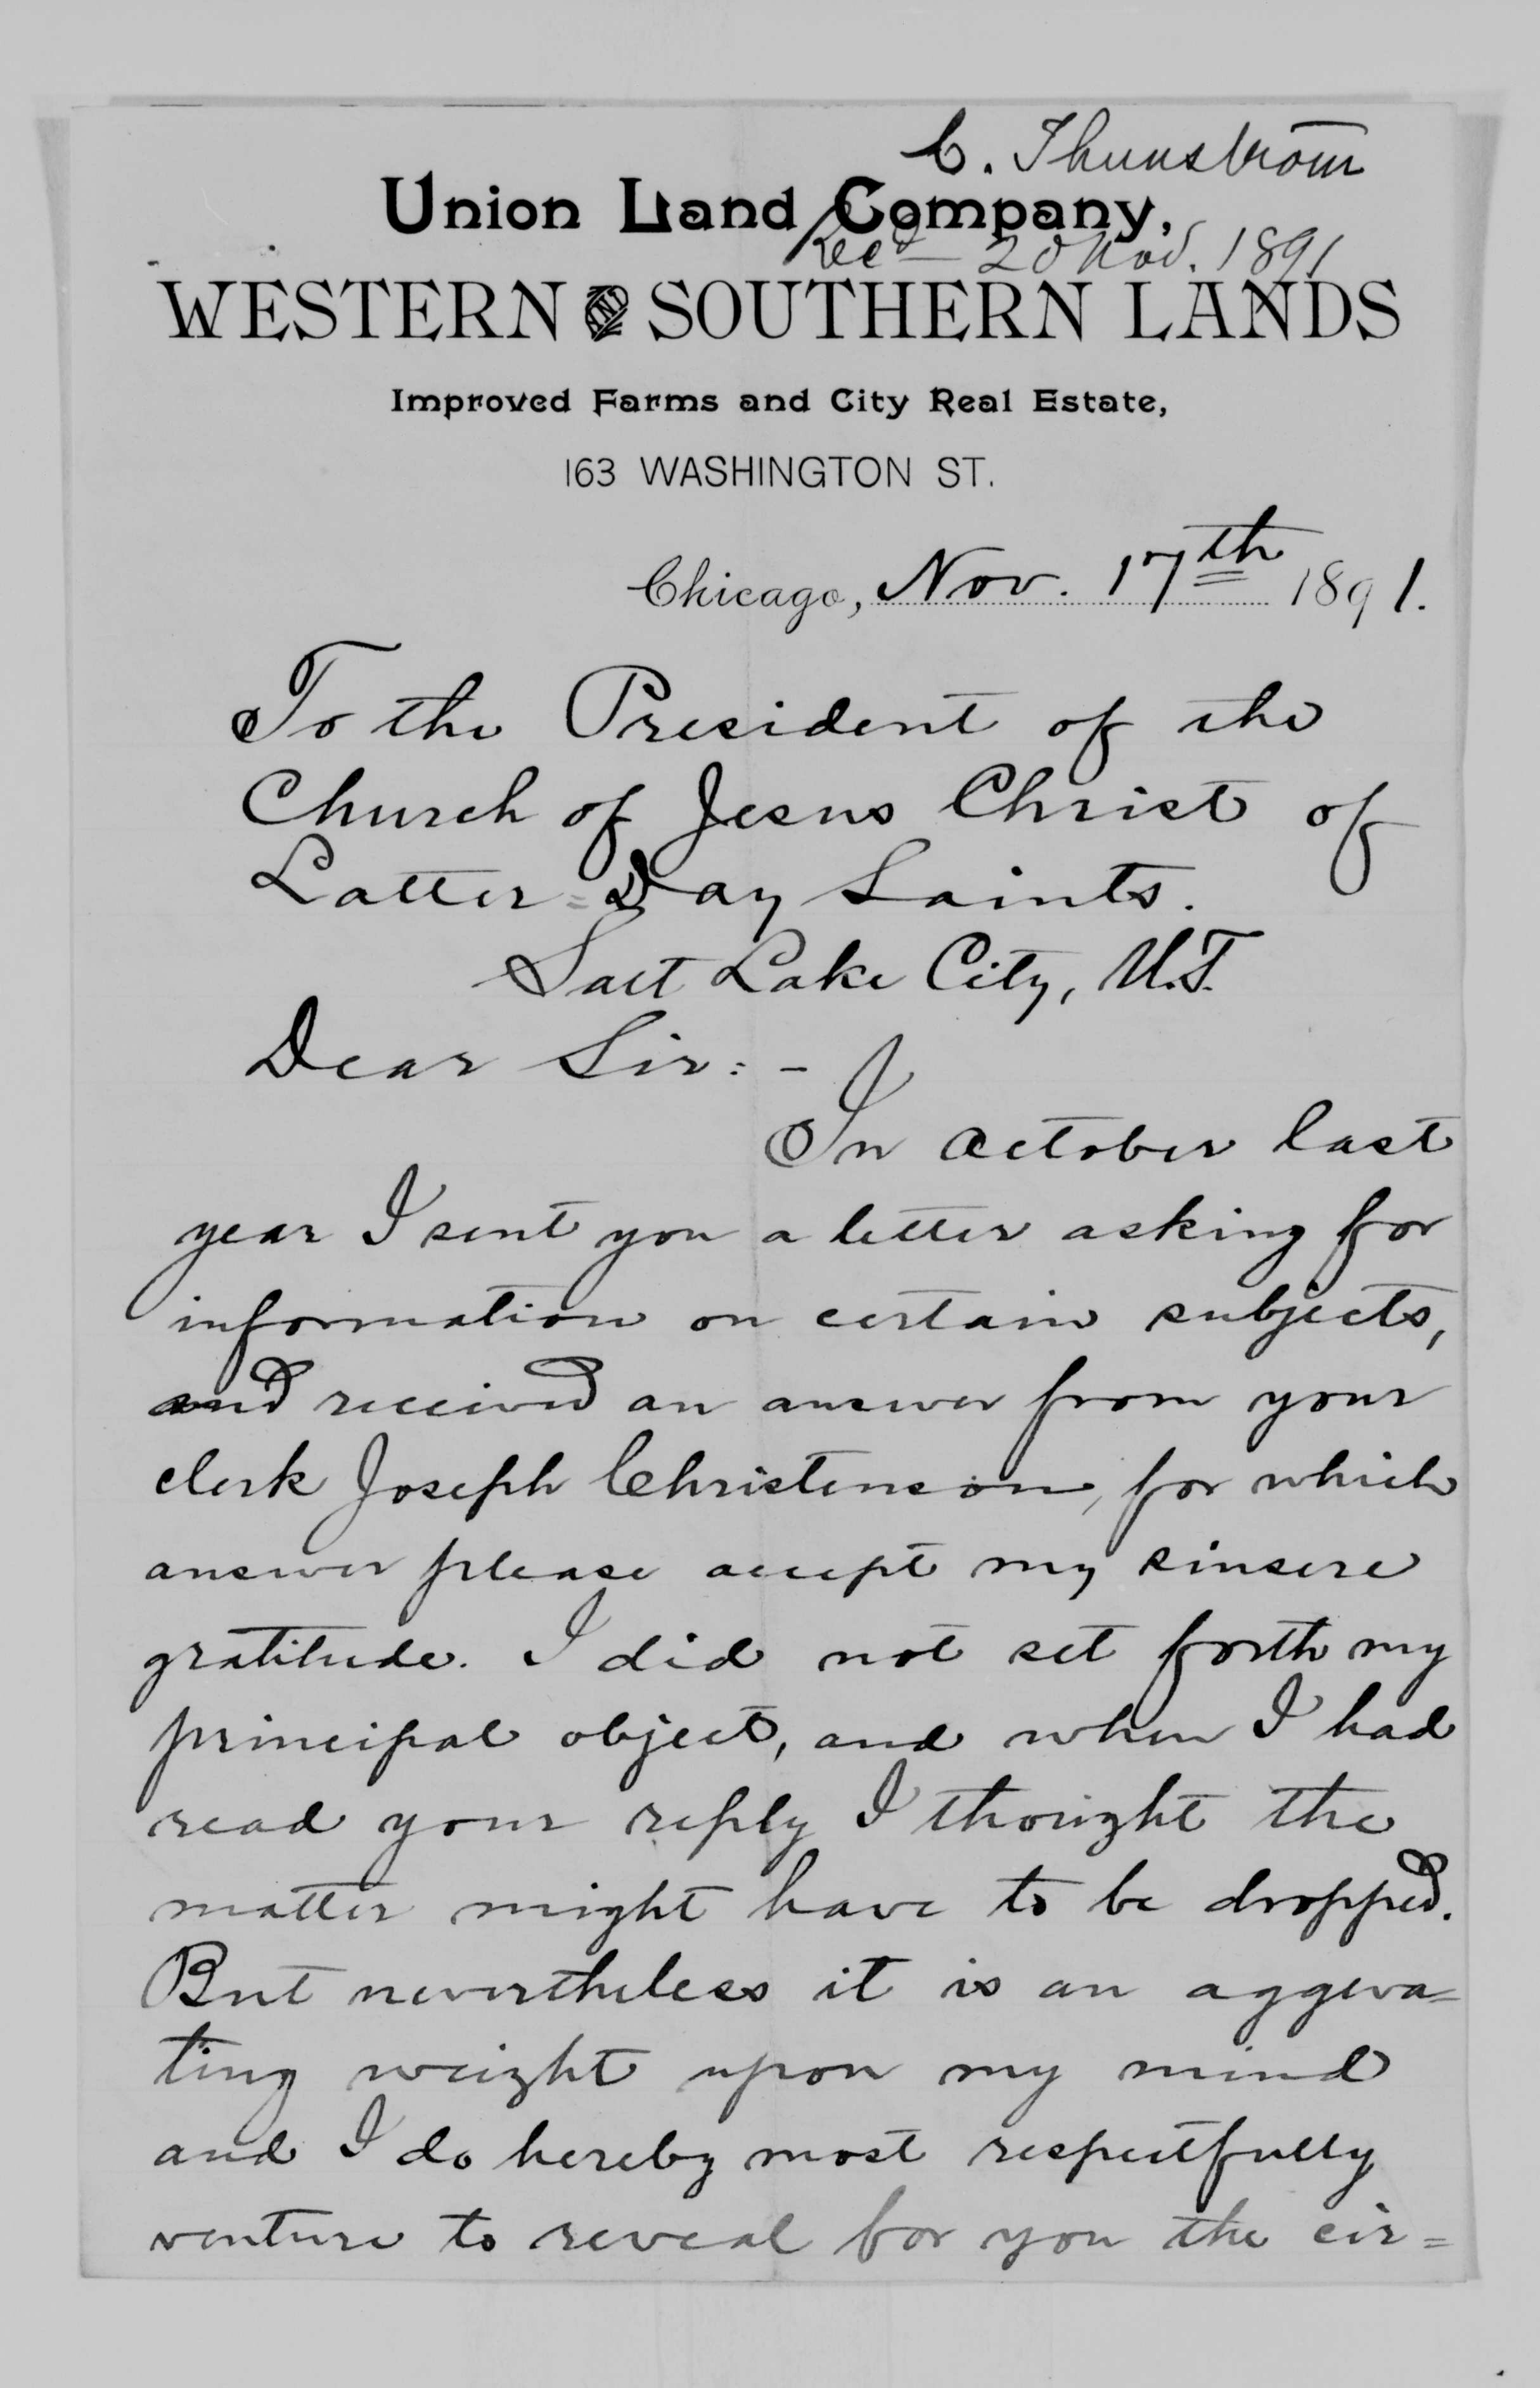 C. Thunström
Union Land Company,
Recd 20 Nov. 1891
WESTERN AND SOUTHERN LANDS
Improved Farms and City Real Estate,
163 WASHINGTON ST.
Chicago, Nov. 17th 1891.
To the President of the
Church of Jesus Christ of
Latter=Day Saints.
Salt Lake City, U.T.
Dear Sir:-
In October last
year I sent you a letter asking for
information on certain subjects,
and received an answer from your
clerk Joseph Christenson, for which
answer please accept my sinsere
gratitude. I did not set forth my
principal object, and when I had
read your reply I thought the
matter might have to be dropped.
But nevertheless it is an aggeva=
ting weight upon my mind
and I do hereby most respectfully
venture to reveal for you the cir=